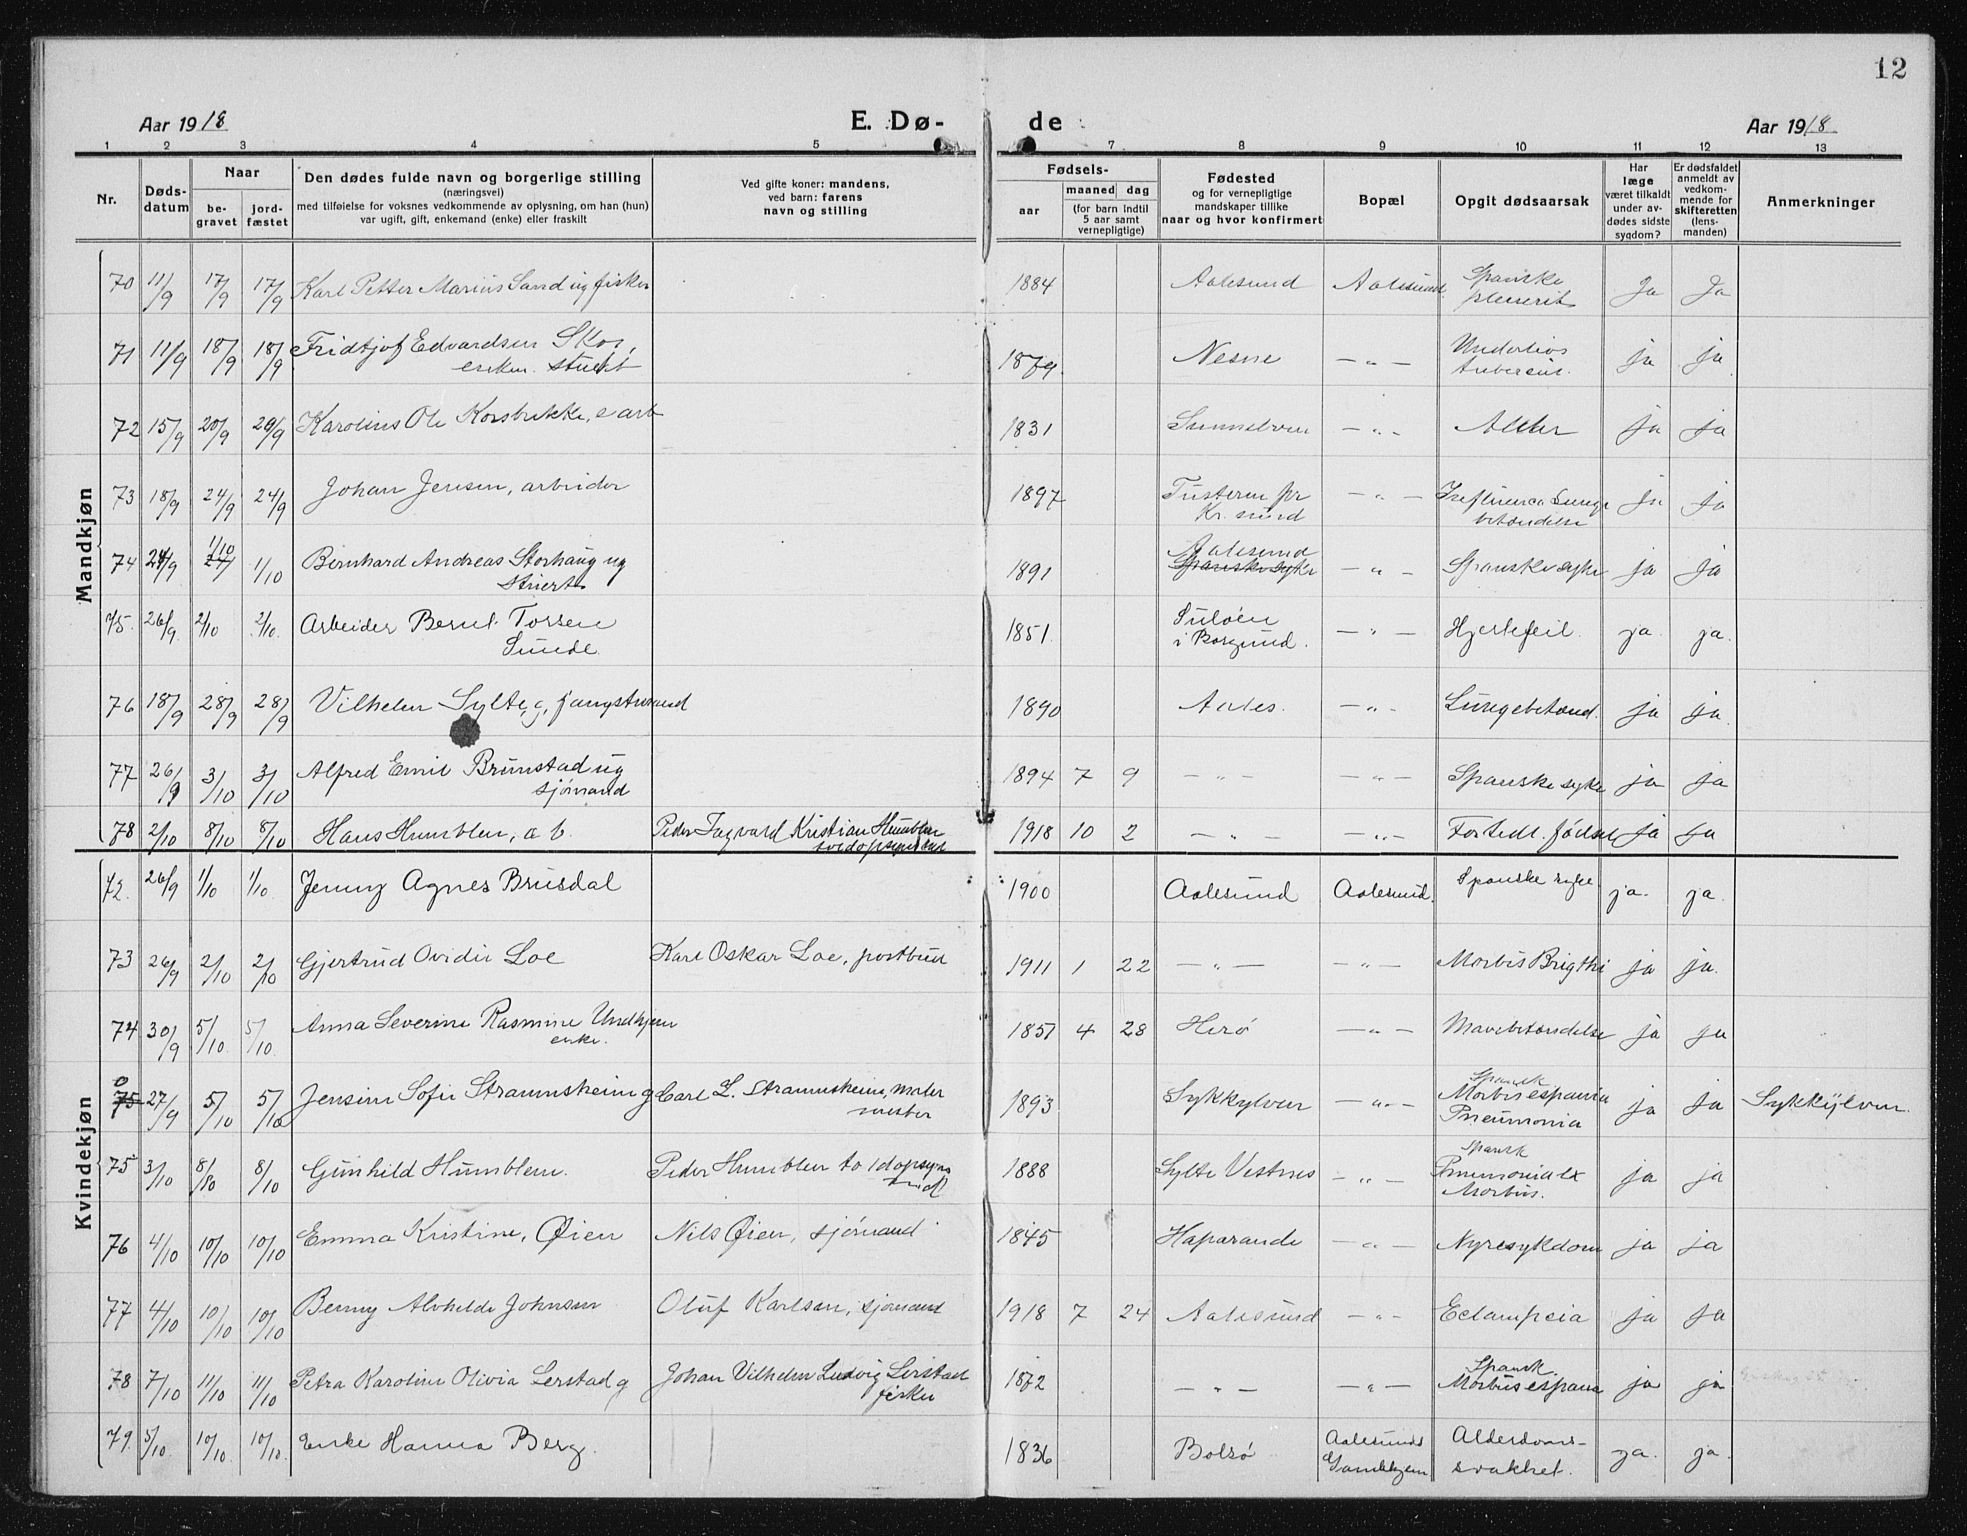 12
Aar 1918 E. Dø- de Aar 1918
1 2 3 4 5 7 8 9 10 11 12 13
Nr. Døds-datum Naar begravet jordfæstet Den dødes fulde navn og borgerlige stilling (næringsvei) med tilføielse for voksnes vedkommende av oplysning, om han (hun) var ugift, gift, enkemand (enke) eller fraskilt Ved gifte koner: mandens, ved barn: farens navn og stilling Fødsels- aar maaned dag (for barn indtil 5 aar samt vernepligtige) Fødested og for vernepligtige mandskaper tillike naar og hvor konfirmert Bopæl Opgit dødsaarsak Har læge været tilkaldt under avdødes sidste sygdom? Er dødsfaldet anmeldt av vedkommende for skifteretten (lensmanden) Anmerkninger
Mandkjøn
70 11/9 17/9 17/9 Karl Petter Marius Sand ug fisker 1884 Aalesund Aalesund Spanske pleurit Ja Ja
71 11/9 18/9 18/9 Fridtjof Edvardsen Skor, enkem. stuert 1879 Nesne —"— Underlivs tubercul. ja ja
72 15/9 20/9 20/9 Karolius Ole Korsbrekke, e arb 1831 Sunnelven —"— Alder ja ja
73 18/9 24/9 24/9 Johan Jensen, arbeider 1897 Tusteren pr Kr. sund —"— Influenca Lunge betændelse ja ja
74 24/9 1/10 1/10 Bernhard Andreas Storhaug ug Stuert 1891 Aalesund Spanske syke —"— Spanske syke ja ja
75. 26/9. 2/10 2/10. Arbeider Bernt Torsen Sunde. 1851. Suløen i Borgund. —"— Hjertefeil. ja. ja.
76 18/9 28/9 28/9 Vilhelm Sylte, g, fangstmand 1890 Aales. —"— Lungebetænd. ja ja.
77 26/9 3/10 3/10 Alfred Emil Brunstad ug sjømand 1894 7 9 —"— —"— Spanske syke ja ja
78 2/10 8/10 8/10 Hans Humblen, a b. Peder Ingvard Kristian Humblen 1918 10 2 —"— —"— For tidl. fødsel ja ja
Kvindekjøn
72. 26/9 1/10 1/10 Jenny Agnes Brusdal 1900 Aalesund Aalesund. Spanske syke ja. ja.
73 26/9 2/10 2/10 Gjertrud Ovidie Loe Karl Oskar Loe, postbud 1911 1 22 —"— —"— Morbus Brigthi ja ja.
74 30/9 5/10. 5/10. Anna Severine Rasmine Undhjem enke. 1857 4 28 Herø —"— Mavebetændelse ja ja
0 75 27/9 5/10 5/10 Jensine Sofie Straumsheim g Carl L. Straumsheim, maler mester 1893 Sykkylven —"— Spansk Morbus espania Pneumonia ja ja Sykkylven.
75 3/10 8/10 8/10 Gunhild Humblen. Peder Humblen 1888 Sylte Vestnes —"— Spansk Pneumonia ex Morbus. ja ja
76 4/10 10/10 10/10 Emma Kristine, Øien Nils Øien, sjømand 1845 Haparanda —"— Nyresykdom ja ja
77 4/10 10/10 10/10 Benny Alvhilde Johnsen Oluf Karlsen, sjømand 1918 7 24 Aalesund —"— Eclampsia ja ja
78 7/10 11/10 11/10 Petra Karoline Olivia Lerstad g Johan Vilhelm Ludvig Lerstad fisker 1872 —"— —"— Spansk Morbus espana ja ja
79. 5/10. 10/10 10/10. Enke Hanna Berg. 1836 Bolsø Aalesunds Gamlehjem Alderdoms-svakhet. ja. ja.